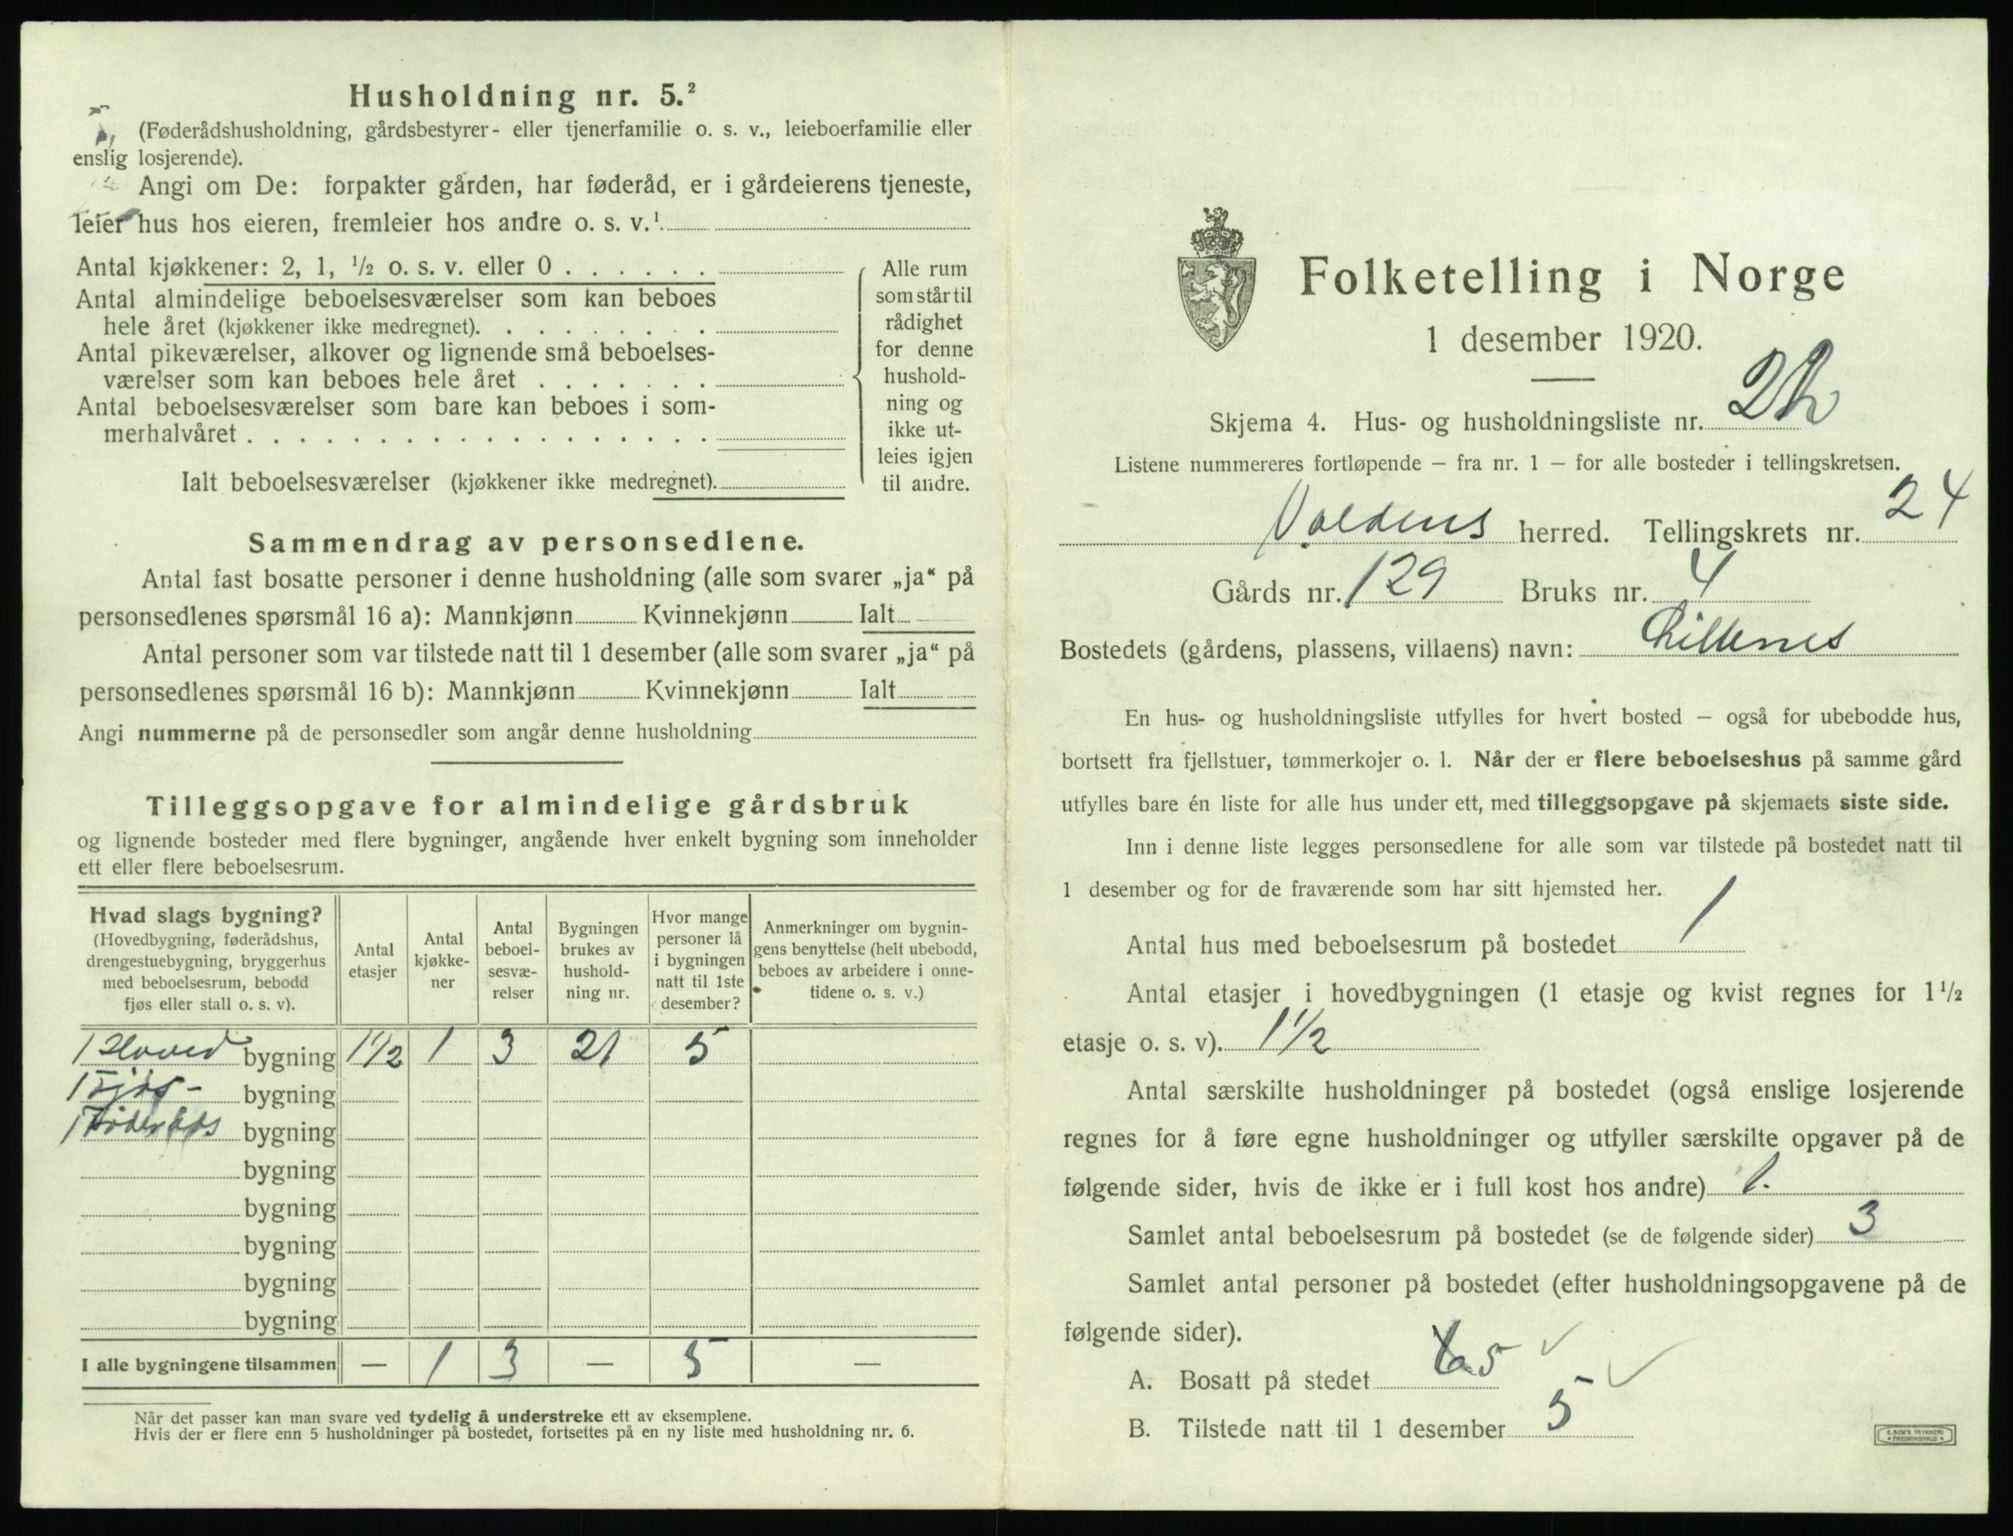 Husholdning nr. 5.²
5,
(Føderådshusholdning, gårdsbestyrer- eller tjenerfamilie o. s. v., leieboerfamilie eller
enslig losjerende).
Angi om De: forpakter gården, har føderåd, er i gårdeierens tjeneste,
leier hus hos eieren, fremleier hos andre o. s. v.¹
Antal kjøkkener: 2, 1, ½ o. s. v. eller 0 . . . . . .
Antal almindelige beboelsesværelser som kan beboes
hele året (kjøkkener ikke medregnet). . . . . . . . .
Antal pikeværelser, alkover og lignende små beboelses-
værelser som kan beboes hele året . . . . . . .
Antal beboelsesværelser som bare kan beboes i som-
merhalvåret . . . . . . . . . . . . . . . . . .
Ialt beboelsesværelser (kjøkkener ikke medregnet).
Alle rum
som står til
rådighet
for denne
hushold-
ning og
ikke ut-
leies igjen
til andre.
Sammendrag av personsedlene.
Antal fast bosatte personer i denne husholdning (alle som svarer „ja“ på
personsedlenes spørsmål 16 a): Mannkjønn Kvinnekjønn Ialt
Antal personer som var tilstede natt til 1 desember (alle som svarer „ja“ på
personsedlenes spørsmål 16 b): Mannkjønn Kvinnekjønn Ialt
Angi nummerne på de personsedler som angår denne husholdning
Tilleggsopgave for almindelige gårdsbruk
og lignende bosteder med flere bygninger, angående hver enkelt bygning som inneholder
ett eller flere beboelsesrum.
Hvad slags bygning?
(Hovedbygning, føderådshus,
drengestuebygning, bryggerhus
med beboelsesrum, bebodd
fjøs eller stall o. s. v).
Antal
etasjer
Antal
kjøkke-
ner
Antal
beboel-
sesvæ-
relser
Bygningen
brukes av
hushold-
ning nr.
Hvor mange
personer lå
i bygningen
natt til 1ste
desember?
Anmerkninger om bygnin-
gens benyttelse (helt ubebodd,
beboes av arbeidere i onne-
tidene o. s. v.)
1 Hoved bygning 1½ 1 3 21 5
1 Fjøs- bygning
1 bygning
bygning
bygning
bygning
bygning
bygning
I alle bygningene tilsammen — 1 3 — 5 —
Når det passer kan man svare ved tydelig å understreke ett av eksemplene.
Hvis der er flere enn 5 husholdninger på bostedet, fortsettes på en ny liste med husholdning nr. 6.
Folketelling i Norge
1 desember 1920.
Skjema 4. Hus- og husholdningsliste nr.
Listene nummereres fortløpende – fra nr. 1 – for alle bosteder i tellingskretsen.
Voldens herred. Tellingskrets nr. 24
Gårds nr. 129 Bruks nr. 4
Bostedets (gårdens, plassens, villaens) navn: Lillenes
En hus- og husholdningsliste utfylles for hvert bosted – også for ubebodde hus,
bortsett fra fjellstuer, tømmerkojer o. l. Når der er flere beboelseshus på samme gård
utfylles bare én liste for alle hus under ett, med tilleggsopgave på skjemaets siste side.
Inn i denne liste legges personsedlene for alle som var tilstede på bostedet natt til
1 desember og for de fraværende som har sitt hjemsted her.
Antal hus med beboelsesrum på bostedet 1
Antal etasjer i hovedbygningen (1 etasje og kvist regnes for 1½
etasje o. s. v). 1½
Antal særskilte husholdninger på bostedet (også enslige losjerende
regnes for å føre egne husholdninger og utfyller særskilte opgaver på de
følgende sider, hvis de ikke er i full kost hos andre) 1.
Samlet antal beboelsesrum på bostedet (se de følgende sider) 3
Samlet antal personer på bostedet (efter husholdningsopgavene på de
følgende sider).
A. Bosatt på stedet 5
B. Tilstede natt til 1 desember 5
E. SEM'S TRYKKERI
FREDRIKSHALD